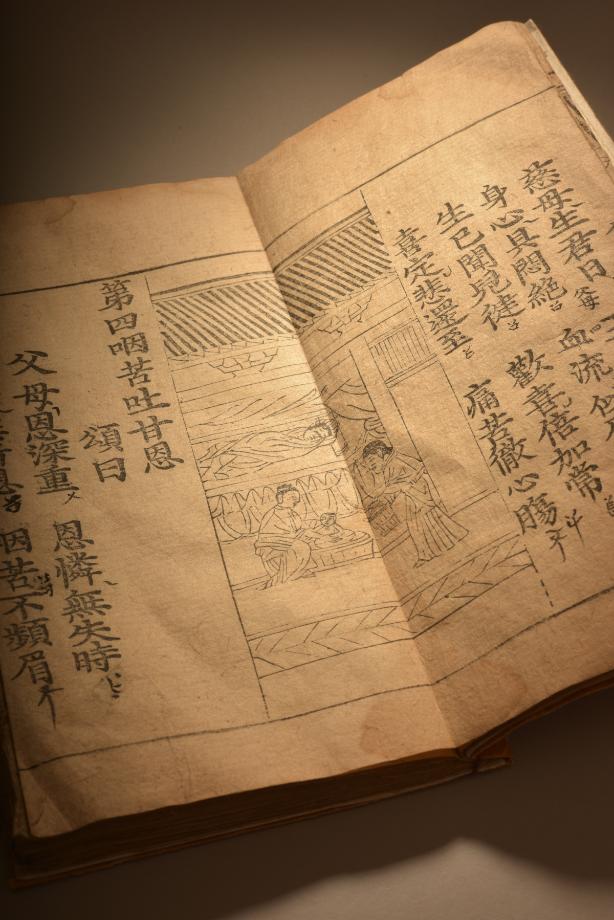 慈母生君日
身心具悶絶 血流似
生已聞兒徒 歡喜倍加常
喜定悲還至 痛苦徹心膓
第四咽苦吐甘恩
頌曰
父母恩深重 恩憐無失時
因苦不頻眉